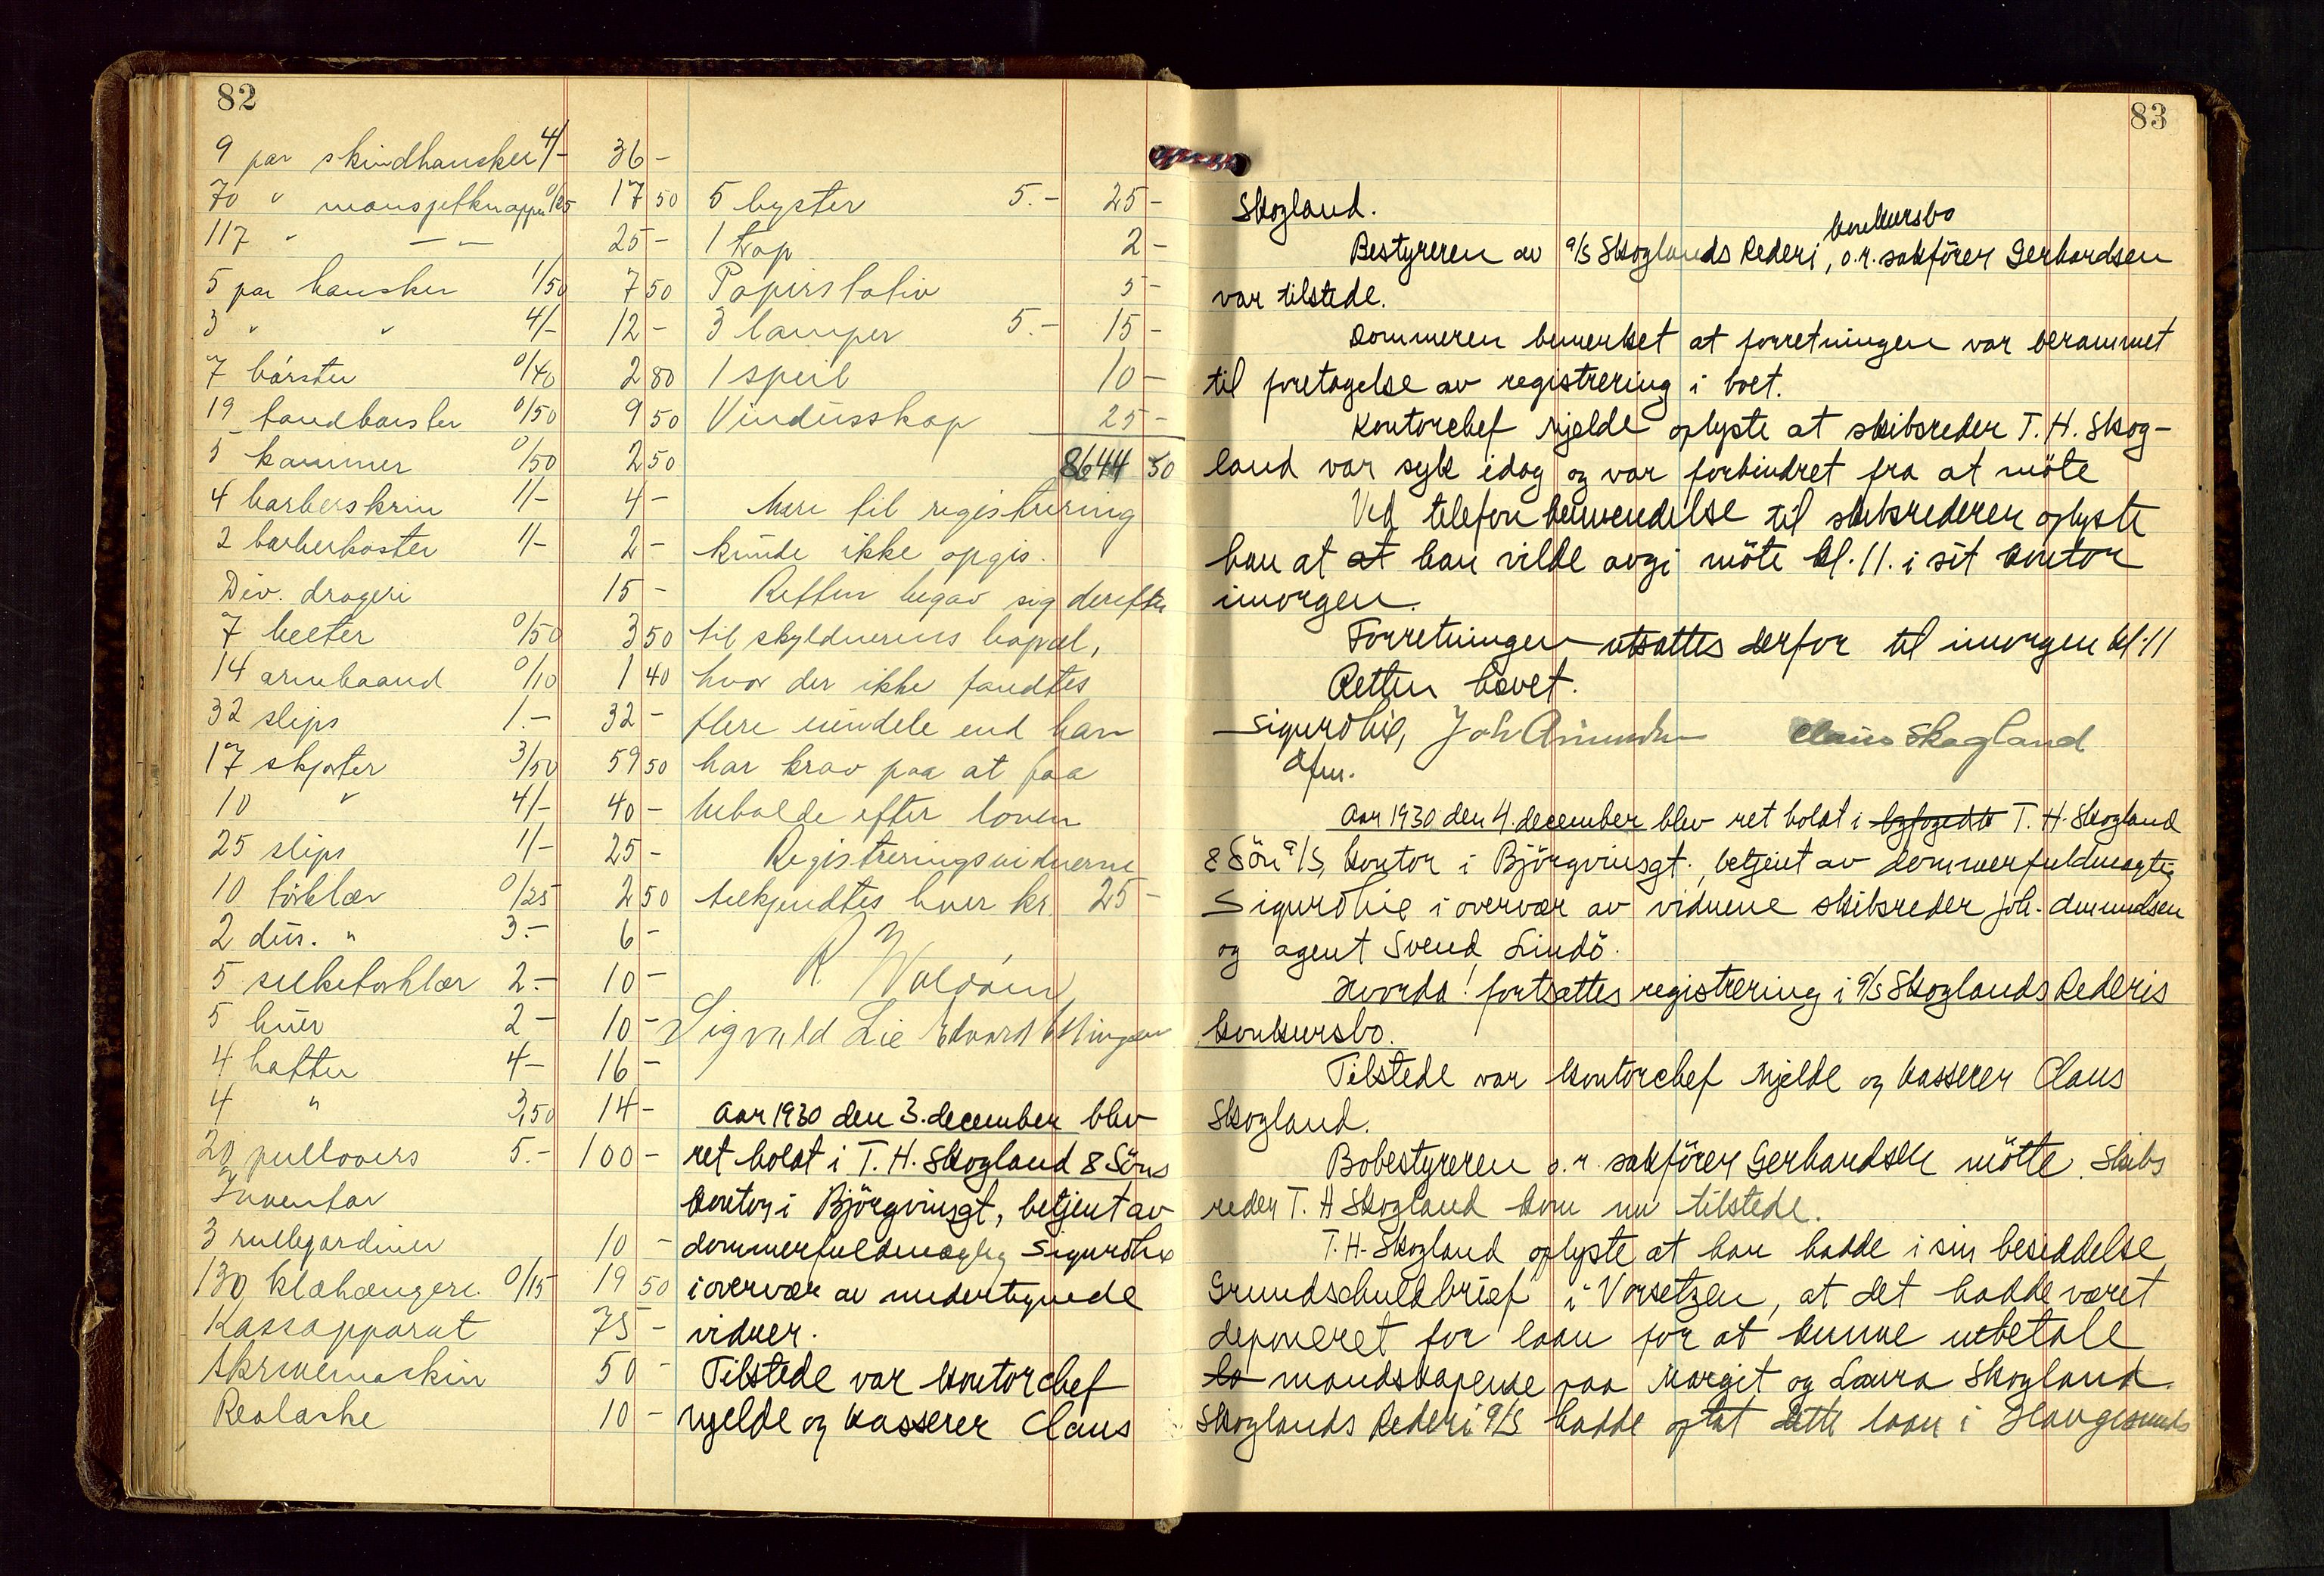 82
9 par skindhansker 4/- 36 -
70 " mansjetknapper 0/25 17 50
117 " — " — 25 -
5 par hansker 1/50 7 50
3 " " 4/- 12 -
7 börster 0/40 2 80
19 tandbörster 0/50 9 50
5 kammer 0/50 2 50
4 barberskrin 1/- 4 -
2 barberkoster 1/- 2 -
Div. drogeri 15 -
7 belter 0/50 3 50
14 armbaand 0/10 1 40
32 slips 1.- 32 -
17 skjorter 3/50 59 50
10 " 4/- 40 -
25 slips 1/- 25 -
10 törklær 0/25 2 50
2 dus. " 3.- 6 -
5 silketörklær 2.- 10 -
5 huer 2 - 10 -
4 hatter 4 - 16 -
4 " 3,50 14 -
20 pullovers 5.- 100 -
Inventar
3 rullegardiner 10 -
130 klæhengere 0/15 19 50
Kassapparat 75 -
Skrivemaskin 50 -
Realaske 10 -
5 byster 5.- 25 -
1 trap 2 -
Papirstativ 5 -
3 lamper 5.- 15 -
1 speil 10 -
Vindusskap 25 -
8644 50
Mere til registrering
kunde ikke opgis.
Retten begav sig derefter
til skyldnerens bopæl,
hvor der ikke fandtes
flere eiendele end han
har krav paa at faa
beholde efter loven
Registreringsvidnerne
tilkjendtes hver kr. 25 -
Sigvald Lie
Aar 1930 den 3. december blev
ret holdt i T. H. Skogland & Söns
kontor i Björgvinsgt, betjent av
dommerfuldmægtig Sigurd Lie
i overvær av undertegnede
vidner.
Tilstede var kontorchef
Mjelde og kasserer Claus
83
Skogland.
konkursbo
Bestyreren av A/S Skoglands Rederi, o.r. sakförer Gerhardsen
var tilstede.
Dommeren bemerket at forretningen var berammet
til foretagelse av registrering i boet.
Kontorchef Mjelde oplyste at skibsreder T. H. Skog-
land var syk idag og var forhindret fra at möte
Ved telefon henvendelse til skibsrederen oplyste
han at at han vilde avgi möte kl. 11. i sit kontor
imorgen.
Forretningen utsattes derfor til imorgen kl. 11
Retten hævet.
Sigurd Lie, Joh Amundsen Claus Skogland
dfm.
Aar 1930 den 4. december blev ret holdt i byfogedens T. H. Skogland
& Sön A/S, kontor i Björgvinsgt., betjent av dommerfuldmægtig
Sigurd Lie i overvær av vidnene skibsreder Joh. Amundsen
og agent Svend Lindö.
Hvorda! fortsattes registrering i A/S Skoglands Rederis
konkursbo.
Tilstede var kontorchef Mjelde og kasserer Claus
Skogland.
Bobestyreren o.r. sakförer Gerhardsen mötte. Skibs
reder T. H Skogland kom nu tilstede.
T. H. Skogland oplyste at han hadde i sin besiddelse
Grundschuldbrief i Vorsetzen, at det hadde været
deponeret for laan for at kunne utbetale
la mandskapene paa Margit og Laura Skogland.
Skoglands Rederi A/S hadde optat dette laan i Haugesunds